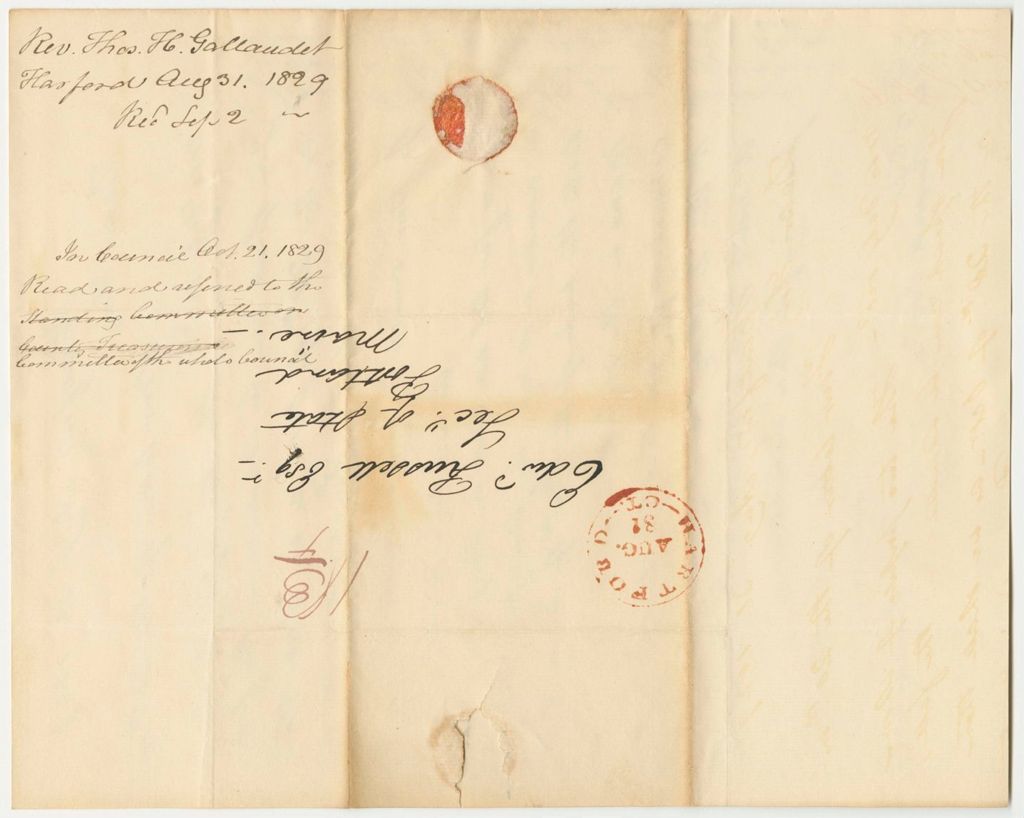 Rev. Thos. H. Gallaudet
Harford Aug 31. 1829
Rec'd Sep 2
In Council Oct. 21. 1829
Read and referred to the
Standing Committee on
County Treasuries
Committee of the whole Council
Edwd. Russell Esqr.
Secy. of State
Portland
Maine.
HARTFORD CT.
AUG.
31